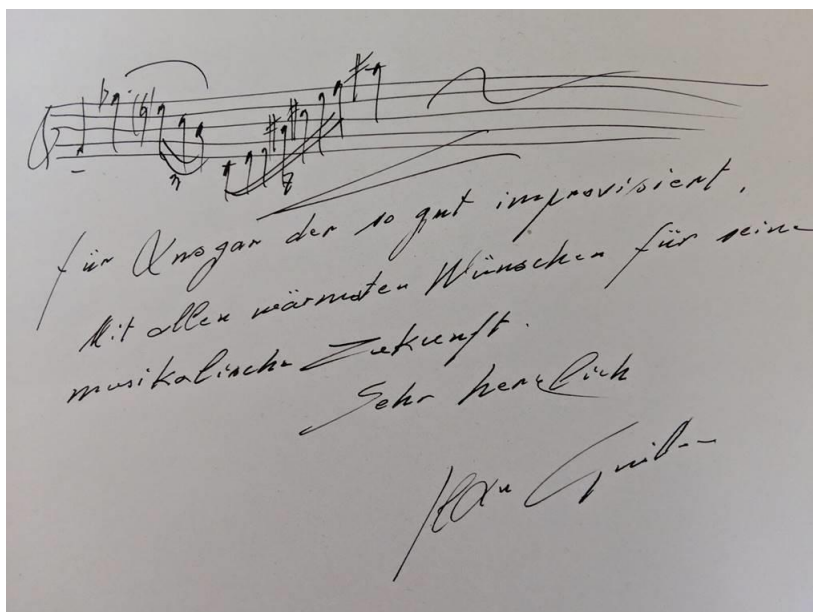 für Ansgar der so gut improvisiert.
Mit allen wärmsten Wünschen für seine
musikalische Zukunft.
Sehr herzlich
Jean Guillou